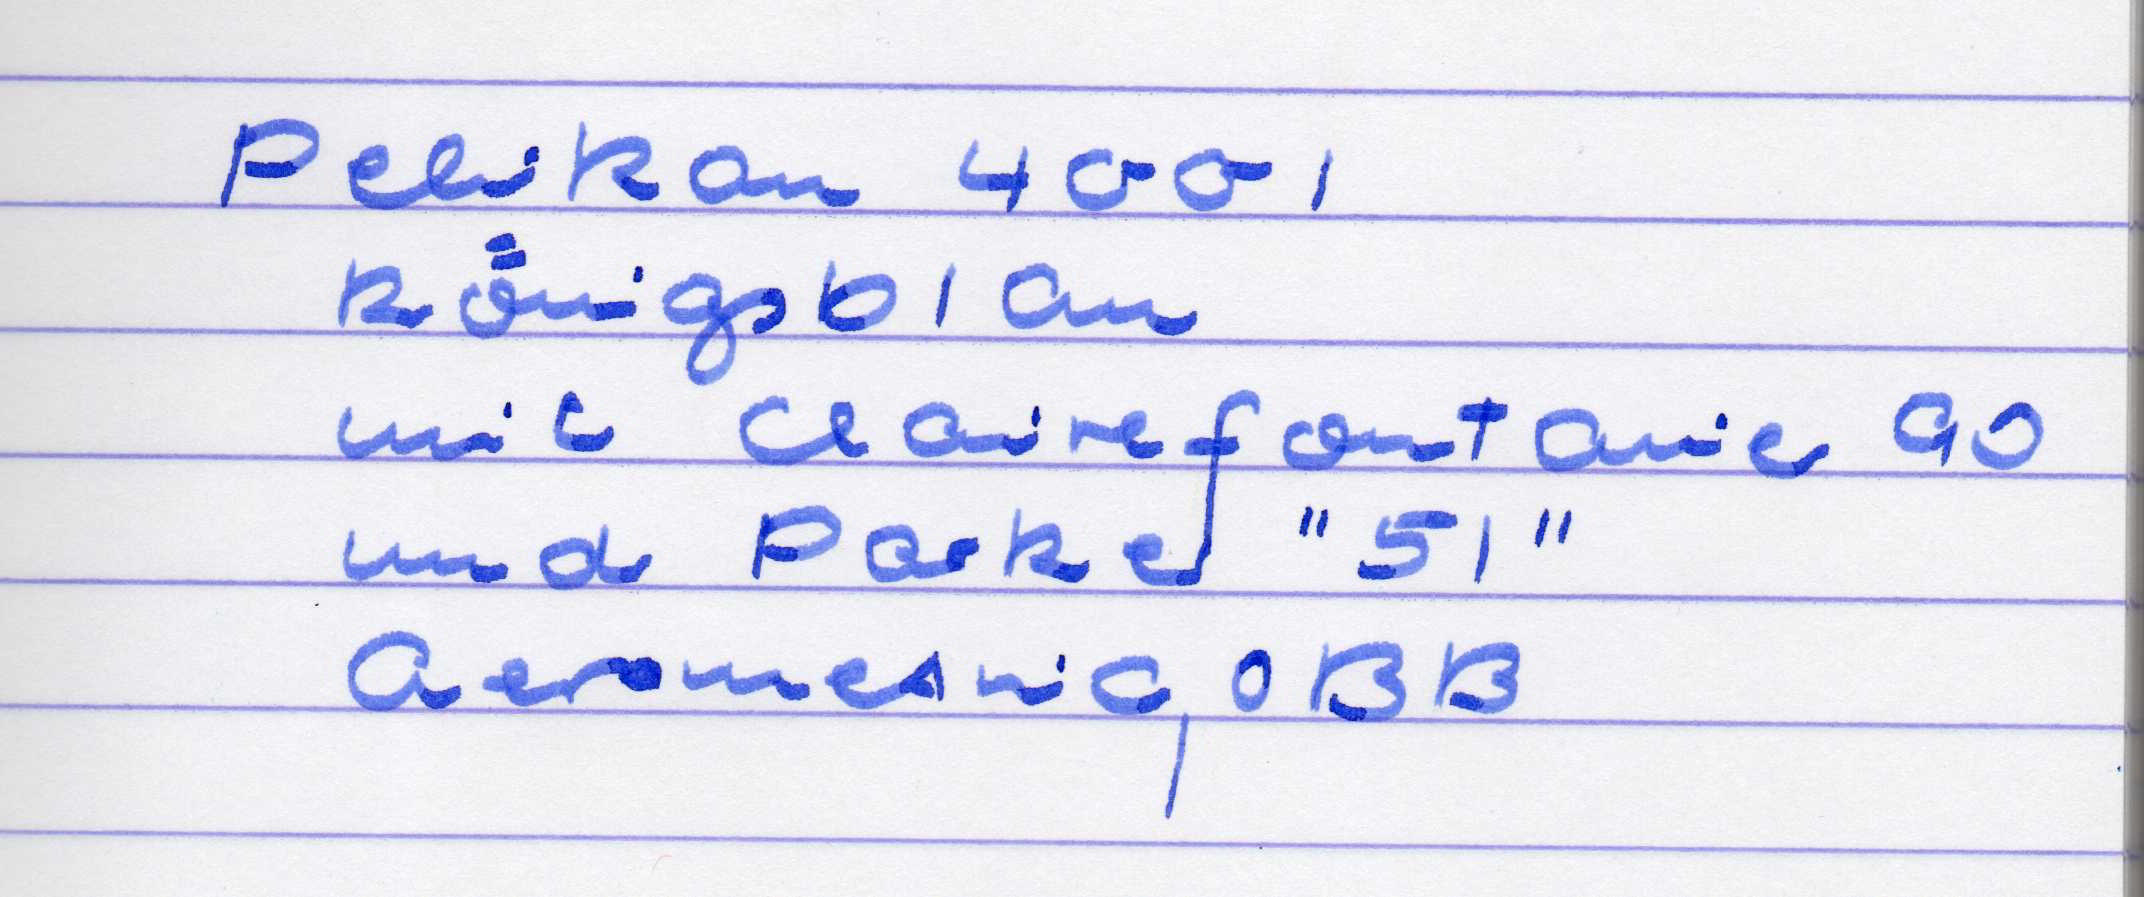 Pelikan 4001
königsblau
mit Clairefontaine 90
und Parker "51"
Aerometric, OBB